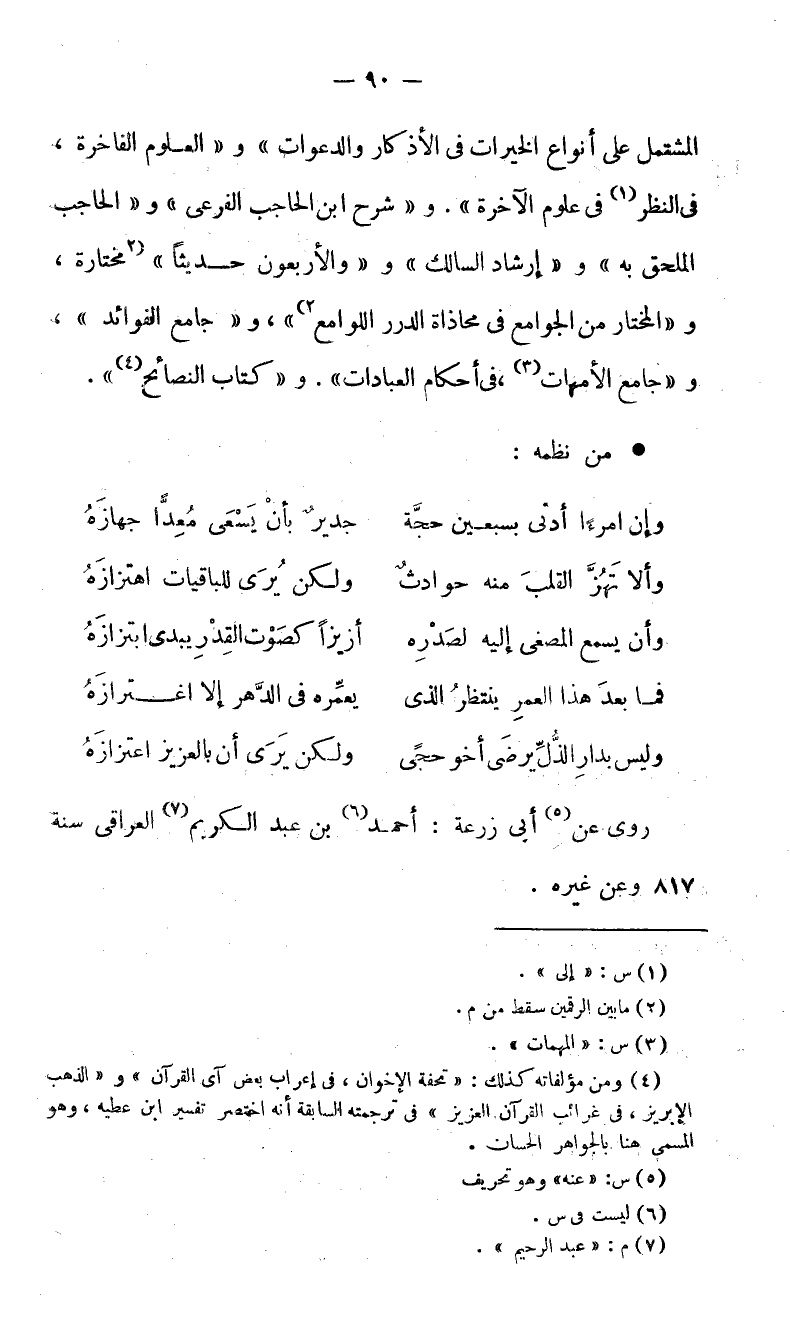 — ٩٠ —
المشتمل على أنواع الخيرات فى الأذكار والدعوات » و « العـلوم الفاخرة ،
فى النظر(١) فى علوم الآخرة » . و « شرح ابن الحاجب الفرعى » و « الحاجب
الملحق به » و « إرشاد السالك » و « والأربعون حـــديثاً » (٢مختارة ،
و « المختار من الجوامع فى محاذاة الدرر اللوامع٢) » ، و « جامع الفوائد » ،
و « جامع الأمهات(٣) ، فى أحكام العبادات » . و « كتاب النصائح(٤) » .
● من نظمه :
وإن امرءا أدنى بسبعـين حجَّة جديرٌ بأنْ يَسْعَى مُعِدًّا جهازَهُ
وألا تَهُزَّ القلبَ منه حوادثٌ ولـكن يُرَى للباقيات اهتزازَهُ
وأن يسمع المصغى إليه لصَدْرِه أزيزاً كصَوْت القِدْرِ يبدى ابتزازَهُ
فمـا بعدَ هذا العمرِ ينتظرُ الذى يعمِّره فى الدَّهر إلا اغـــترازَهُ
وليس بدارِ الذُّلِّ يرضَى أخو حجًى ولـكن يَرَى أن بالعزيز اعتزازَهُ
روى عن(٥) أبى زرعة : أحمـد(٦) بن عبد الـكريم(٧) العراقى سنة
٨١٧ وعن غيره .
(١) س : « إلى » .
(٢) مابين الرقمين سقط من م .
(٣) س : « المهمات » .
(٤) ومن مؤلفاته كذلك : « تحفة الإخوان ، فى إعراب بعض آى القرآن » و « الذهب
الإبريز ، فى غرائب القرآن العزيز » فى ترجمته السابقة أنه اختصر تفسير ابن عطيه ، وهو
المسمى هنا بالجواهر الحسان .
(٥) س: «عنه» وهو تحريف
(٦) ليست فى س .
(٧) م : « عبد الرحيم » .